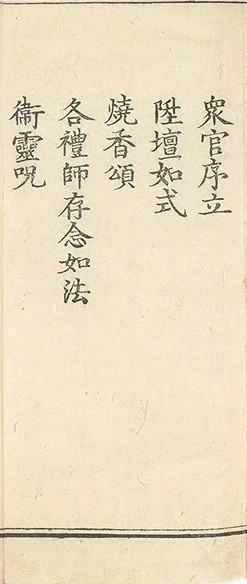 衆官序立
陞壇如式
燒香頌
各禮師存念如法
衞靈呪